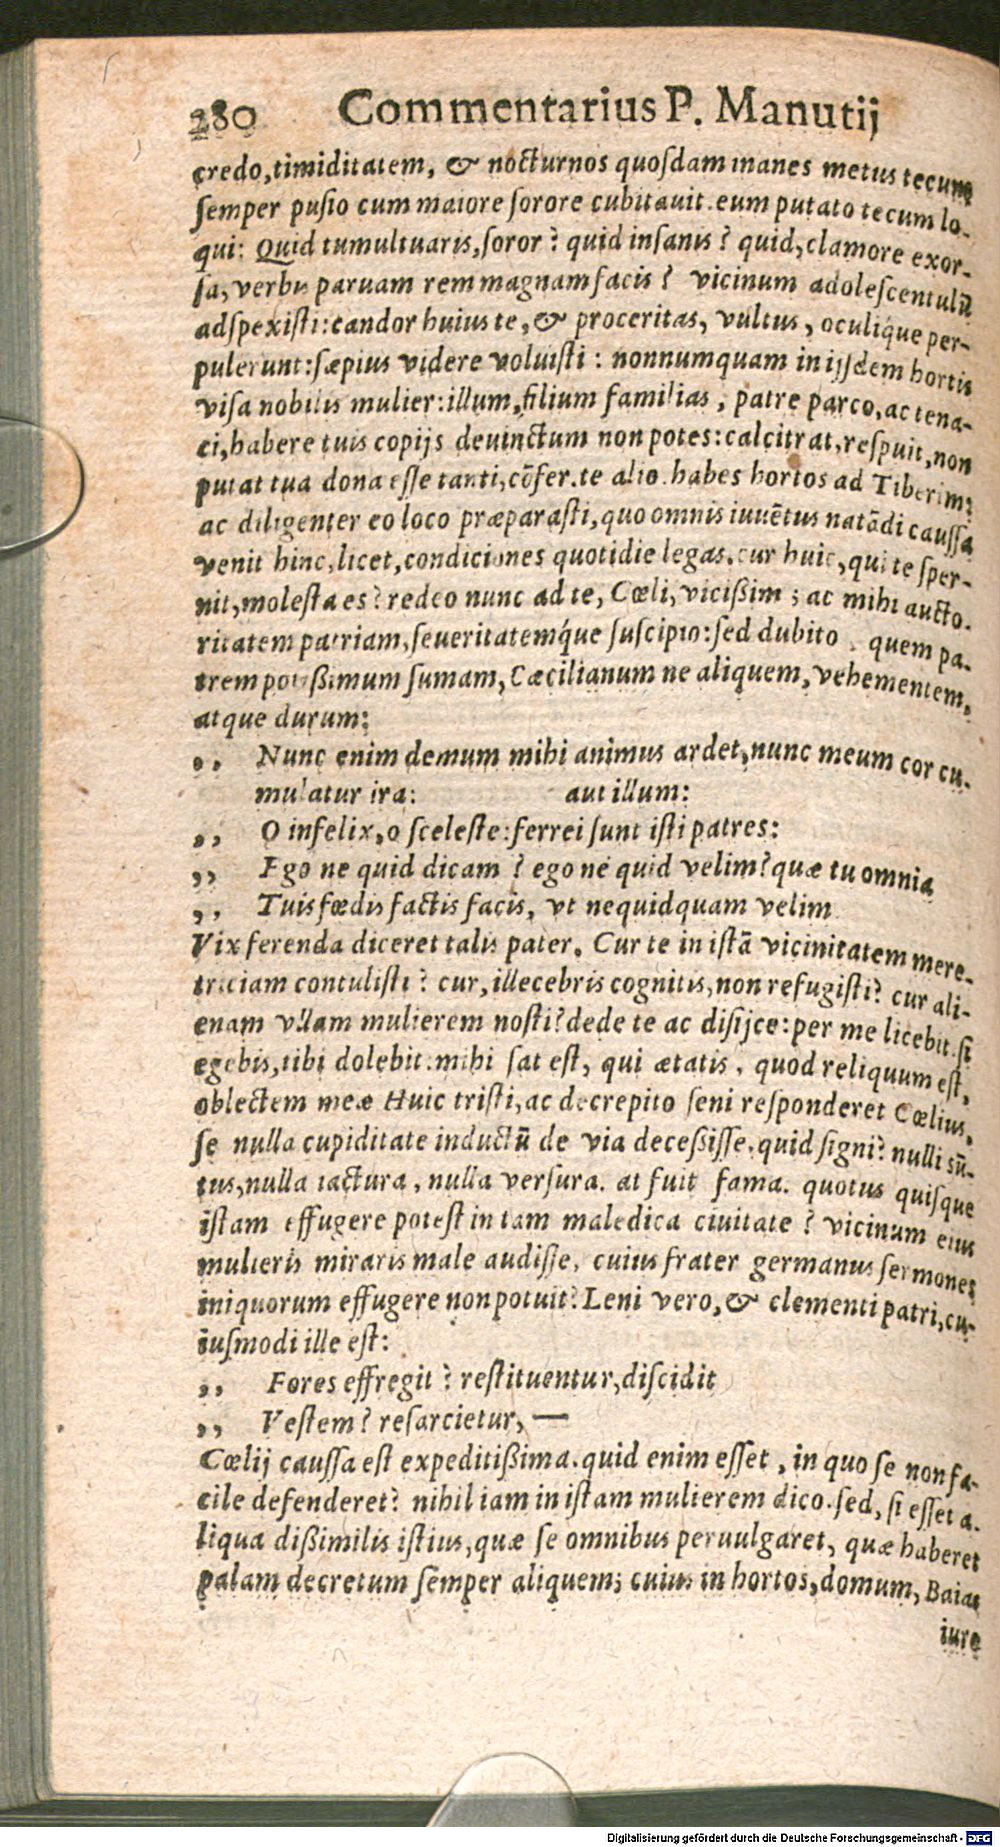 280 Commentarius P. Manutij
credo, timiditatem, & nocturnos quosdam inanes metus tecum
semper pusio cum maiore sorore cubitauit. eum putato tecum lo-
qui: Quid tumultuaris, soror? quid insanis? quid, clamore exor-
sa, verbis paruam rem magnam facis? vicinum adolescentulū
adspexisti: candor huius te, & proceritas, vultus, oculique per-
pulerunt: sæpius videre voluisti: nonnumquam in ijsdem hortis
visa nobilis mulier: illum, filium familias, patre parco, ac tena-
ci, habere tuis copijs deuinctum non potes: calcitrat, respuit, non
putat tua dona esse tanti, cōfer. te alio. habes hortos ad Tiberim:
ac diligenter eo loco præparasti, quo omnis iuuētus natādi caussa
venit hinc, licet, condiciones quotidie legas. cur huic, qui te sper-
nit, molesta es? redeo nunc ad te, Cœli, vicißim; ac mihi aucto-
ritatem patriam, seueritatemq́ue suscipio: sed dubito, quem pa-
trem potißimum sumam, Cæcilianum ne aliquem, vehementem,
atque durum:
,, Nunc enim demum mihi animus ardet, nunc meum cor cu-
mulatur ira: aut illum:
,, O infelix, o sceleste: ferrei sunt isti patres:
,, Ego ne quid dicam? ego ne quid velim? quæ tu omnia
,, Tuis fœdis factis facis, vt nequidquam velim
Vix ferenda diceret talis pater. Cur te in istā vicinitatem mere-
triciam contulisti? cur, illecebris cognitis, non refugisti? cur ali-
enam vllam mulierem nosti? dede te ac disijce: per me licebit. si
egebis, tibi dolebit. mihi sat est, qui ætatis, quod reliquum est,
oblectem meæ Huic tristi, ac decrepito seni responderet Cœlius,
se nulla cupiditate inductū de via deceßisse. quid signi? nulli sū-
tus, nulla iactura, nulla versura. at fuit fama. quotus quisque
istam effugere potest in tam maledica ciuitate? vicinum eius
mulieris miraris male audisse, cuius frater germanus sermones
iniquorum effugere non potuit? Leni vero, & clementi patri, cu-
iusmodi ille est:
,, Fores effregit? restituentur, discidit
,, Vestem? resarcietur, —
Cœlij caussa est expeditißima. quid enim esset, in quo se non fa-
cile defenderet? nihil iam in istam mulierem dico. sed, si esset a-
liqua dißimilis istius, quæ se omnibus peruulgaret, quæ haberet
palam decretum semper aliquem; cuius in hortos, domum, Baias
iure
Digitalisierung gefördert durch die Deutsche Forschungsgemeinschaft - DFG